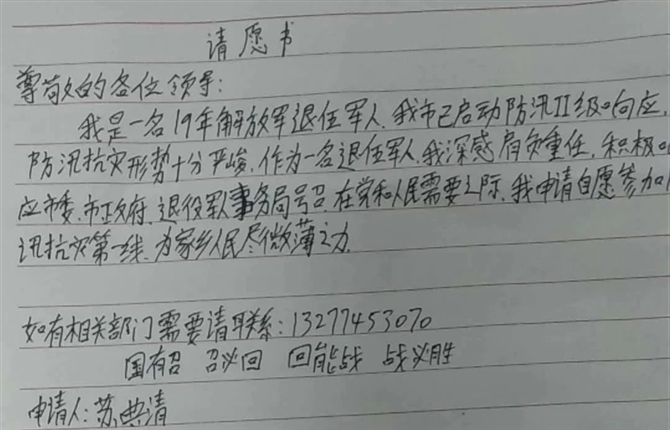 请愿书
尊敬的各位领导:
我是一名19年解放军退伍军人、我市已启动防汛II级响应,
防汛抗灾形势十分严峻,作为一名退伍军人,我深感肩负重任,积极响
应市委、市政府、退役军人事务局号召,在党和人民需要之际,我申请自愿参加
汛抗灾第一线,为家乡人民尽微薄之力.
如有相关部门需要请联系:13277453070
国有召 召必回 回能战 战必胜
申请人:苏典清